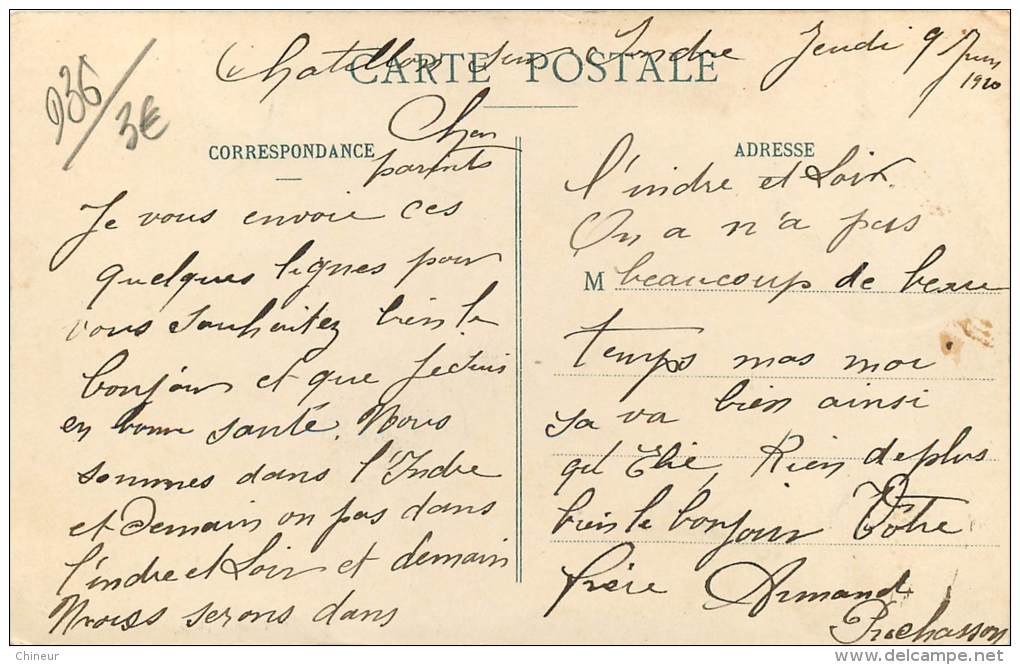 Chatillon sur Indre Jeudi 9 Juin
1910
CARTE POSTALE
936/3€
CORRESPONDANCE
Cher
parents
Je vous envoie ces
quelques lignes pour
vous souhaitez bien le
bonjour et que Je suis
en bonne santé. Nous
sommes dans l'Indre
et Demain on pas dans
l'indre et Loir et demain
Nous serons dans
ADRESSE
l'indre et Loir.
On a n'a pas
M beaucoup de beau
temps mas moi
sa va bien ainsi
qel Elie, Rien de plus
bien le bonjour Votre
frère Armand
Prechasson
Chineur
www.delcampe.net